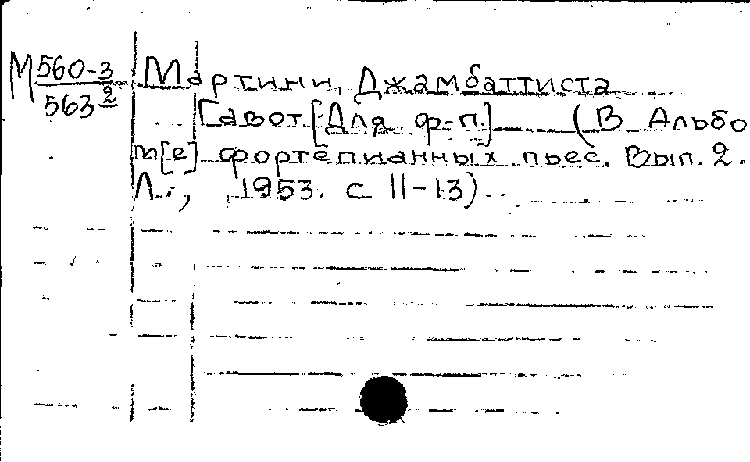 М 560-3 Мартини, Джамбаттиста
563² Гавот [Для ф-п.] (В Альбо
м[е] фортепианных пьес. Вып. 2.
Л., 1953. с 11-13)